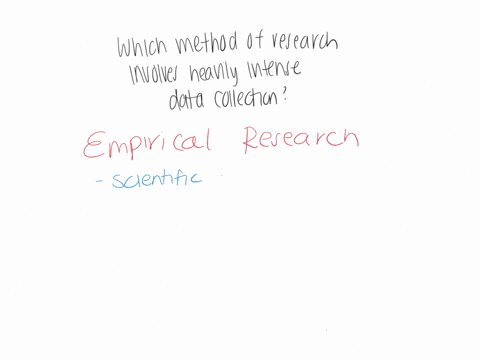 Which method of research
involves heavily intense
data collection?
Empirical Research
- scientific